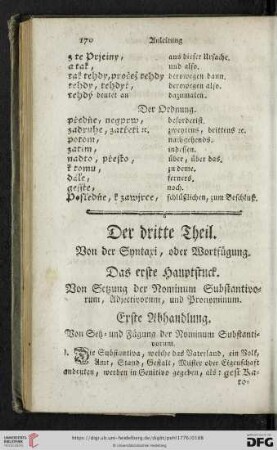 170 Anleitung
z te Prjeiny, aus dieser Ursache.
a tak, und also.
tak tehdy, pročež tehdy derowegen dann.
tehdy, tehdyť, derwegen also.
tehdy deutet an dazumalen.
Der Ordnung.
předně, neyprw, beforderist.
zadruhe, zatřetí ꝛc. zweytens, drittens ꝛc.
potom, nachgehends.
zatim, indessen.
nadto, přesto, über, über das.
k tomu, zu deme.
dále, ferners.
geště, noch.
Posledně, k zawjrce, schlüßlichen, zum Beschluß.
Der dritte Theil.
Von der Syntaxi, oder Wortfügung.
Das erste Hauptstuck.
Von Setzung der Nominum Substantivo-
rum, Adjectivorum, und Pronominum.
Erste Abhandlung.
Von Setz- und Fügung der Nominum Substanti-
vorum.
1. Die Substantiva, welche das Vaterland, ein Volk,
Amt, Stand, Gestalt, Muster oder Eigenschaft
andeuten, werden in Genitivo gegeben, als: gest Ba-
ro-
https://digi.ub.uni-heidelberg.de/diglit/pohl1776/0188
© Universitätsbibliothek Heidelberg
gefördert durch die
DFG